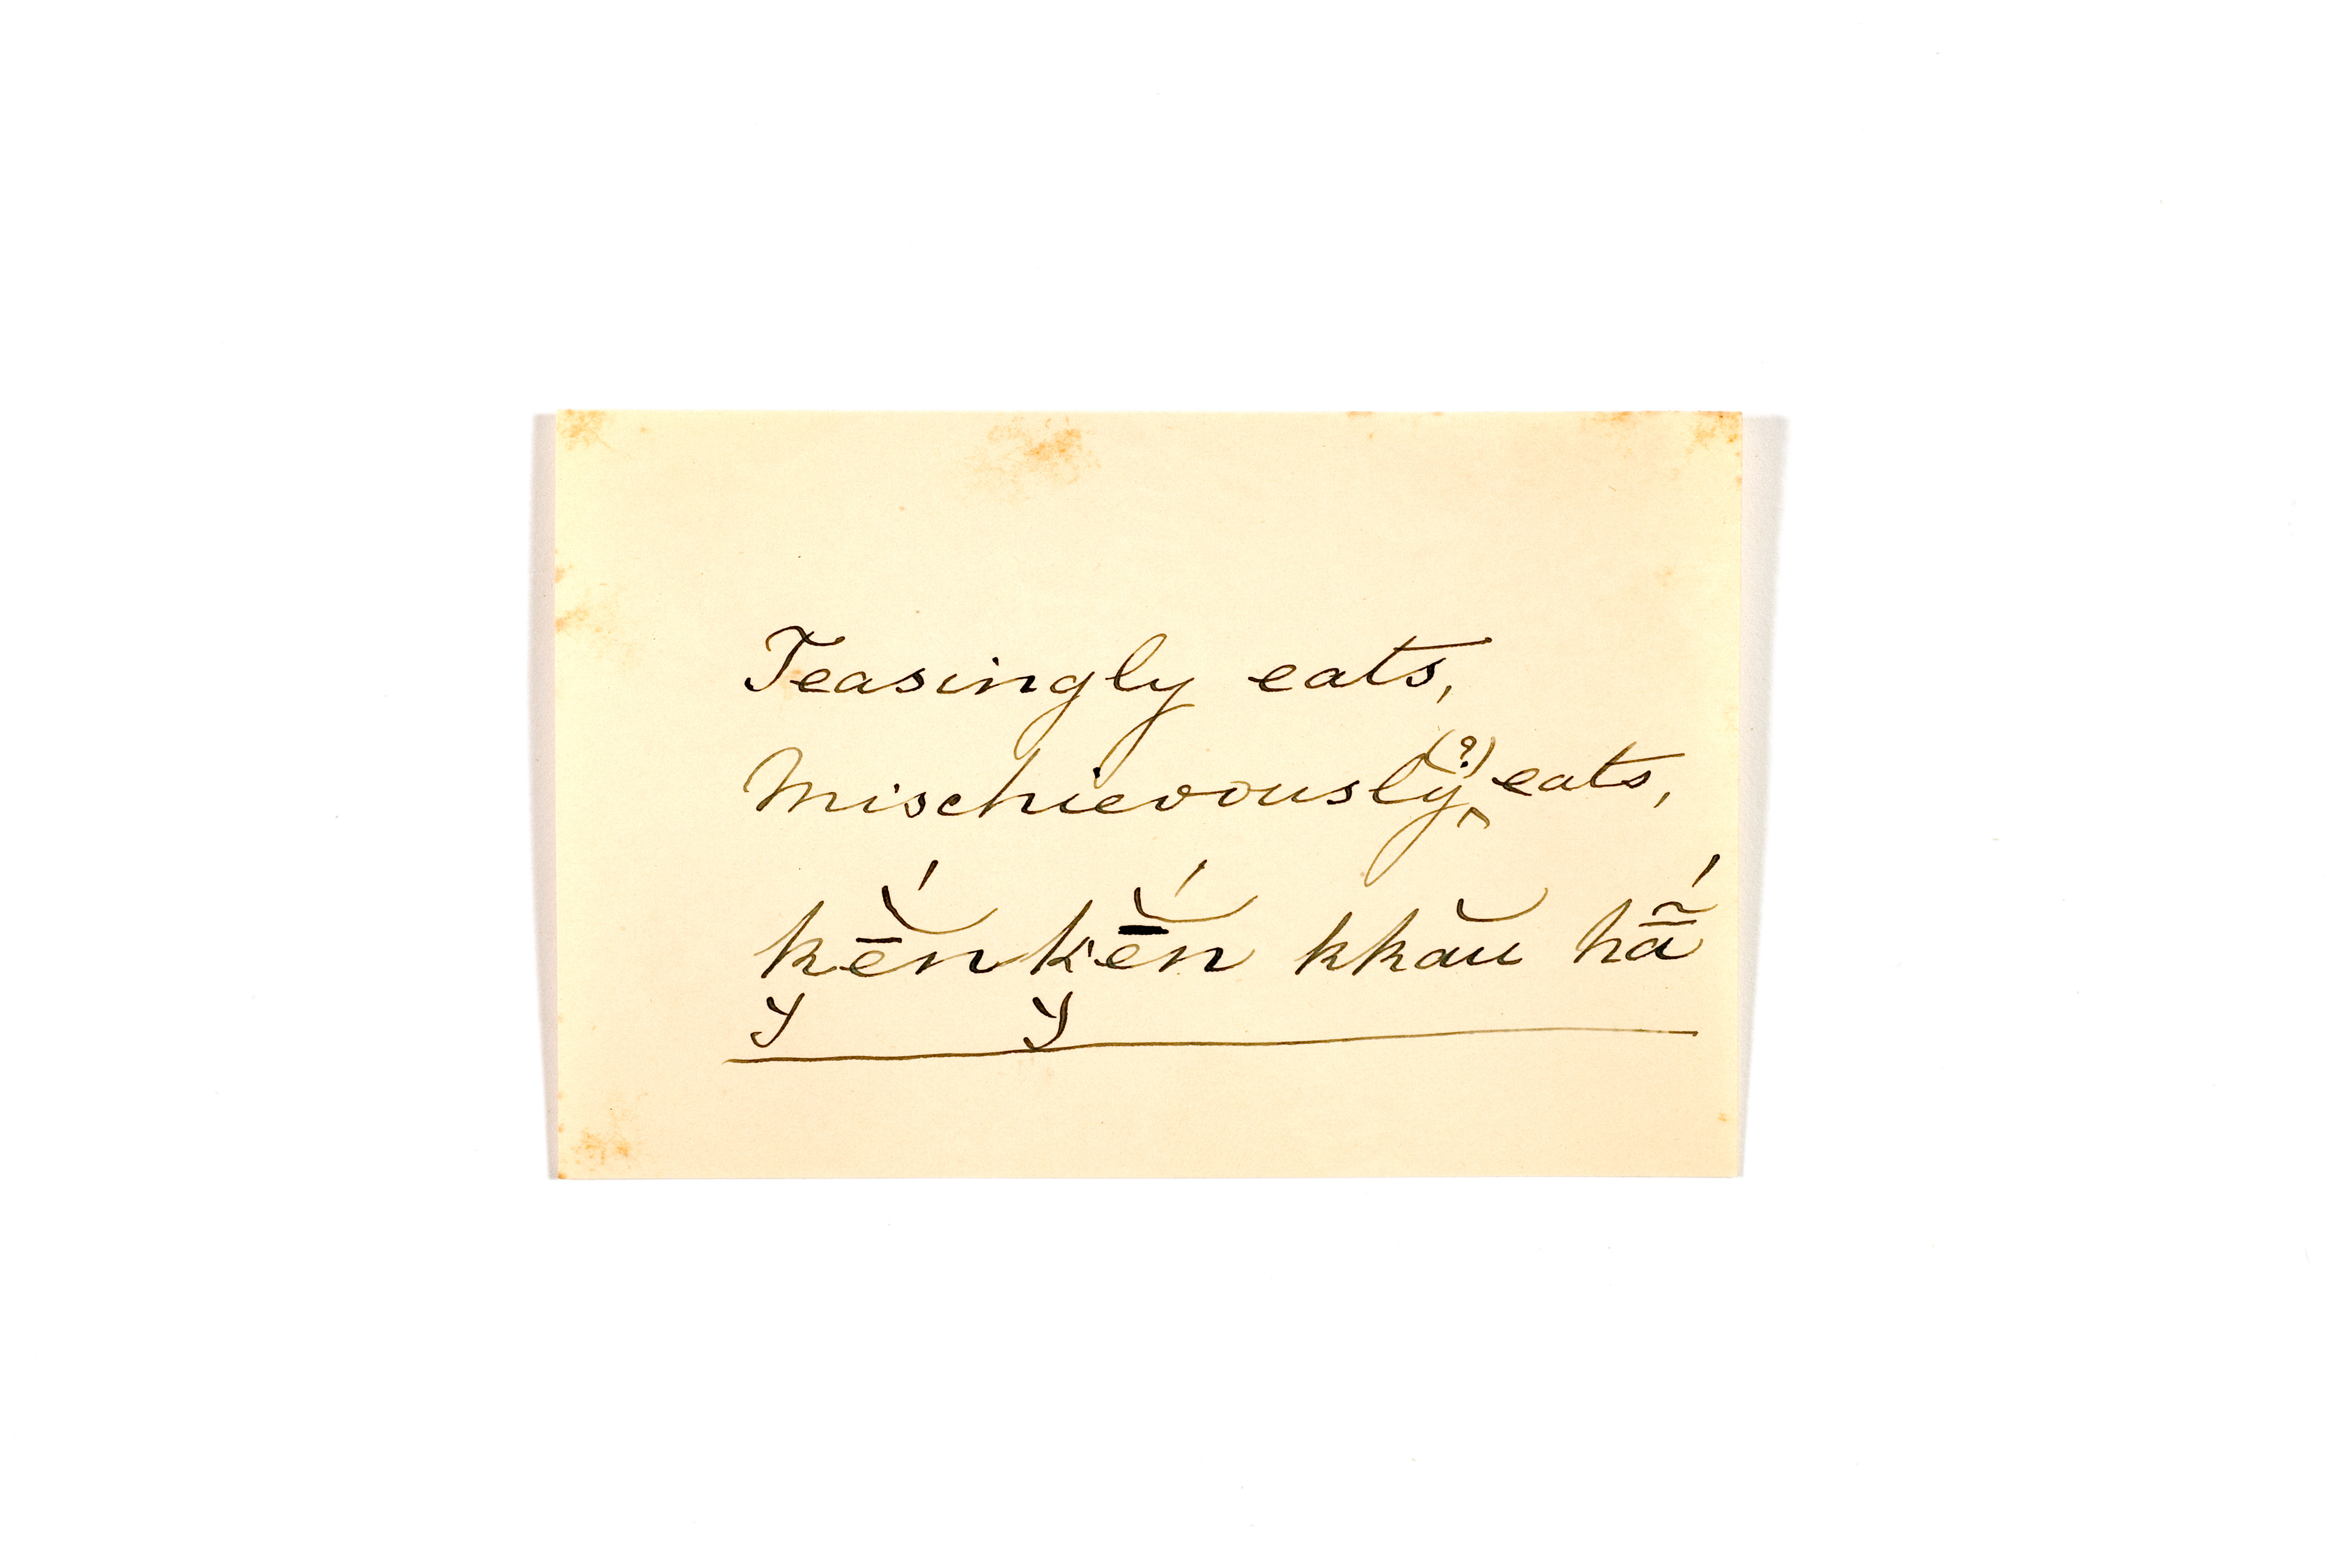 Teasingly eats,
Mischievously (?) eats,
kē̆́nkē̆́n kkău hā̃́
y y